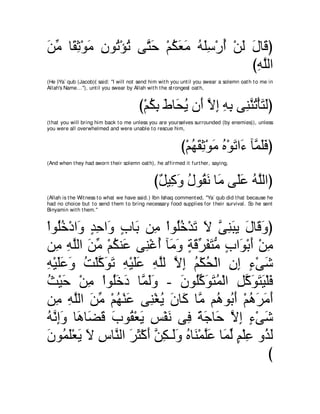 (قَالَ لَنْ أُرْسِلَهُ مَعَكُمْ حَتَّى تُؤْتُونِ مَوْثِقًا مِّنَ
اللَّهِ)
(He (Ya`qub (Jacob)( said: "I will not send him with you until you swear a solemn oath to me in
Allah's Name...''), until you swear by Allah with the strongest oath,
(لَتَأْتُنَّنِى بِهِ إِلاَّ أَن يُحَاطَ بِكُمْ)
(that you will bring him back to me unless you are yourselves surrounded (by enemies)(, unless
you were all overwhelmed and were unable to rescue him,
(فَلَمَّآ ءَاتَوْهُ مَوْثِقَهُمْ)
(And when they had sworn their solemn oath), he affirmed it further, saying,
(اللَّهُ عَلَى مَا نَقُولُ وَكِيلٌ)
(Allah is the Witness to what we have said.) Ibn Ishaq commented, "Ya`qub did that because he
had no choice but to send them to bring necessary food supplies for their survival. So he sent
Binyamin with them.''
(وَقَالَ يبَنِىَّ لاَ تَدْخُلُواْ مِن بَابٍ وَحِدٍ وَادْخُلُواْ
مِنْ أَبْوَابٍ مُّتَفَرِّقَةٍ وَمَآ أُغْنِى عَنكُمْ مِّنَ اللَّهِ مِن
شَىْءٍ إِنِ الْحُكْمُ إِلاَّ لِلَّهِ عَلَيْهِ تَوَكَّلْتُ وَعَلَيْهِ
فَلْيَتَوَكَّلِ الْمُتَوَكِّلُونَ - وَلَمَّا دَخَلُواْ مِنْ حَيْثُ
أَمَرَهُمْ أَبُوهُم مَّا كَانَ يُغْنِى عَنْهُمْ مِّنَ اللَّهِ مِن
شَىْءٍ إِلاَّ حَاجَةً فِى نَفْسِ يَعْقُوبَ قَضَاهَا وَإِنَّهُ
لَذُو عِلْمٍ لِّمَا عَلَّمْنَاهُ وَلَـكِنَّ أَكْثَرَ النَّاسِ لاَ يَعْلَمُونَ
)